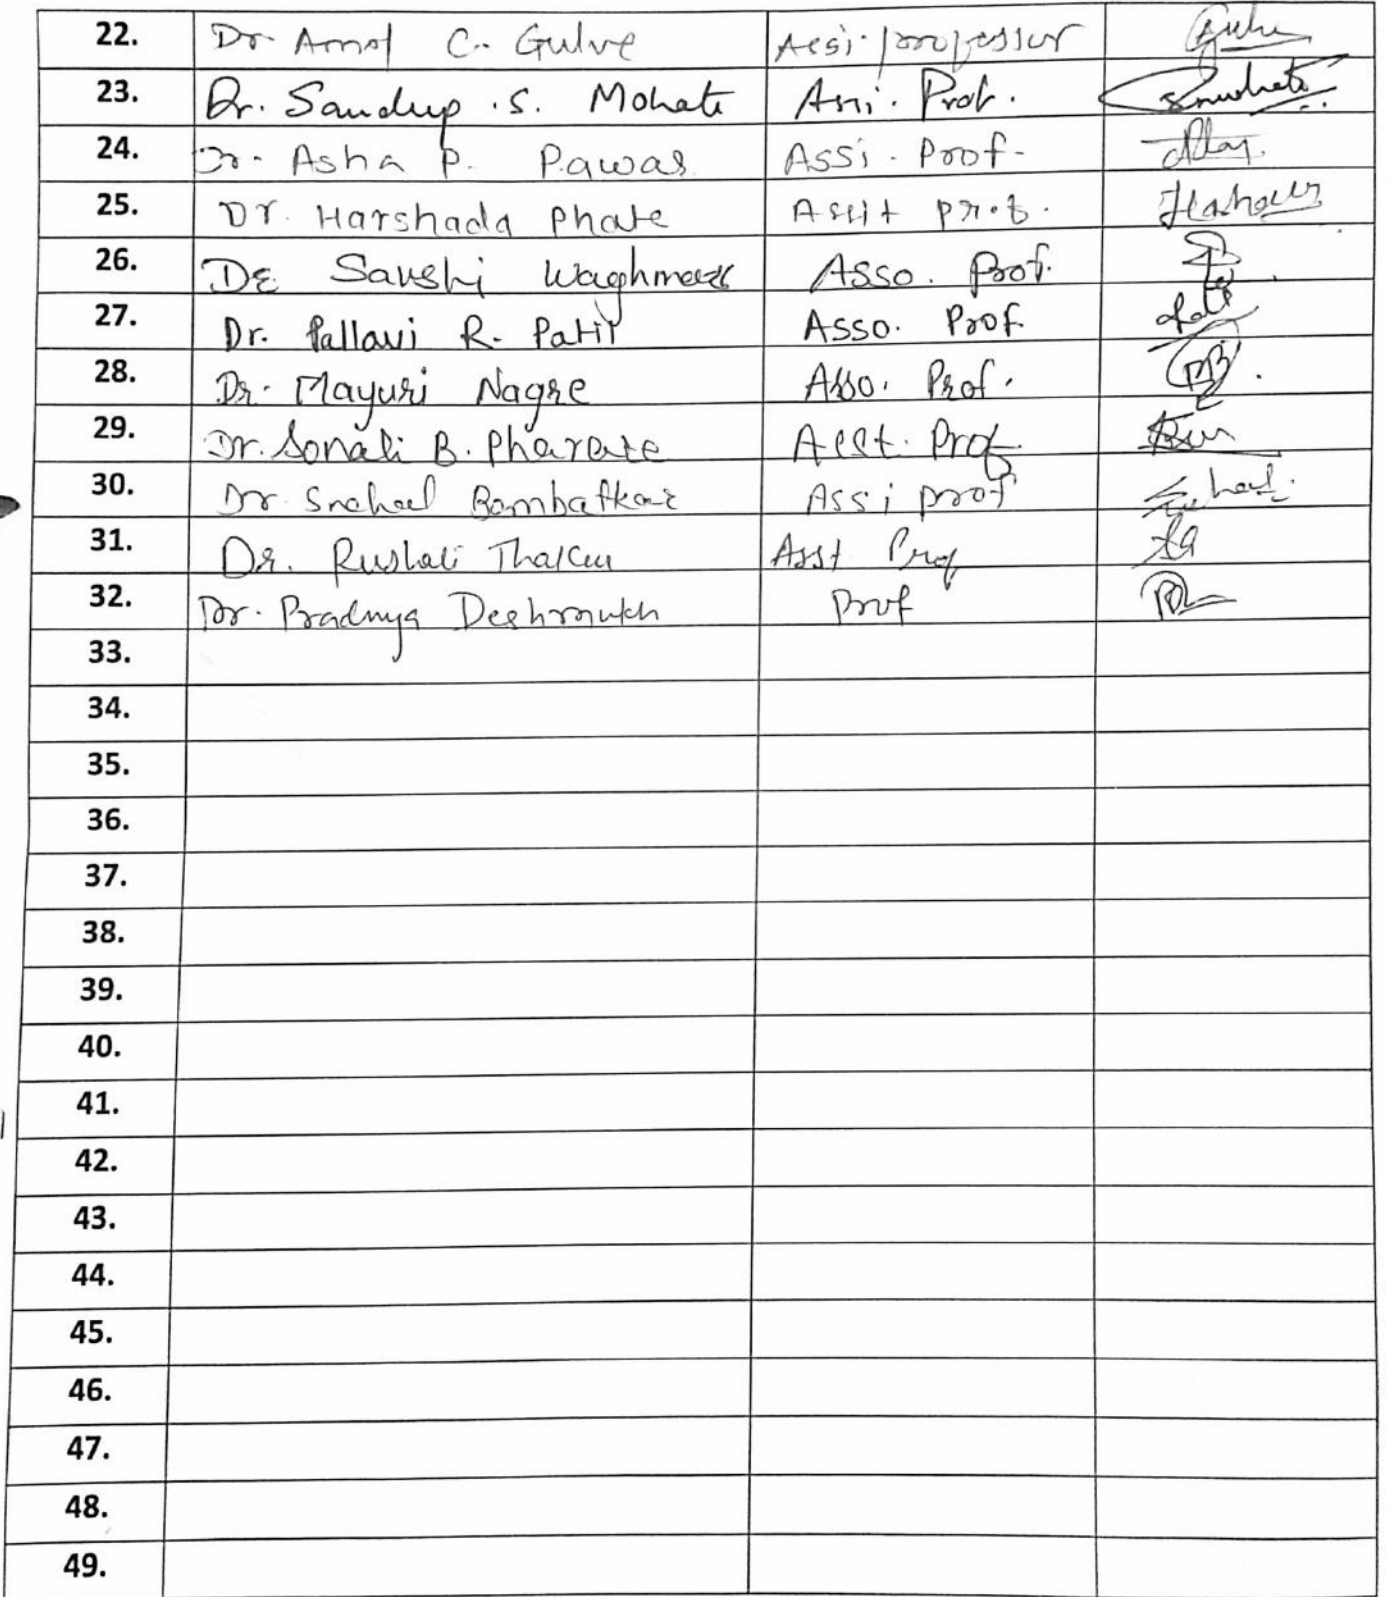 22. Dr Amol C. Gulve Assi. professor
23. Dr. Sandip .S. Mohate Assi. Prof.
24. Dr. Asha P. Pawar Assi. Prof-
25. Dr. Harshada Phate Assit prof.
26. Dr Sakshi Waghmare Asso. Prof.
27. Dr. Pallavi R. Patil Asso. Prof.
28. Dr. Mayuri Nagre Asso. Prof.
29. Dr. Sonali B. Pharate Asst. Prof
30. Dr Snehal Bambatkar Assi prof
31. Dr. Rushali Thakur Asst Prof
32. Dr. Pradnya Deshmukh Prof
33.
34.
35.
36.
37.
38.
39.
40.
41.
42.
43.
44.
45.
46.
47.
48.
49.